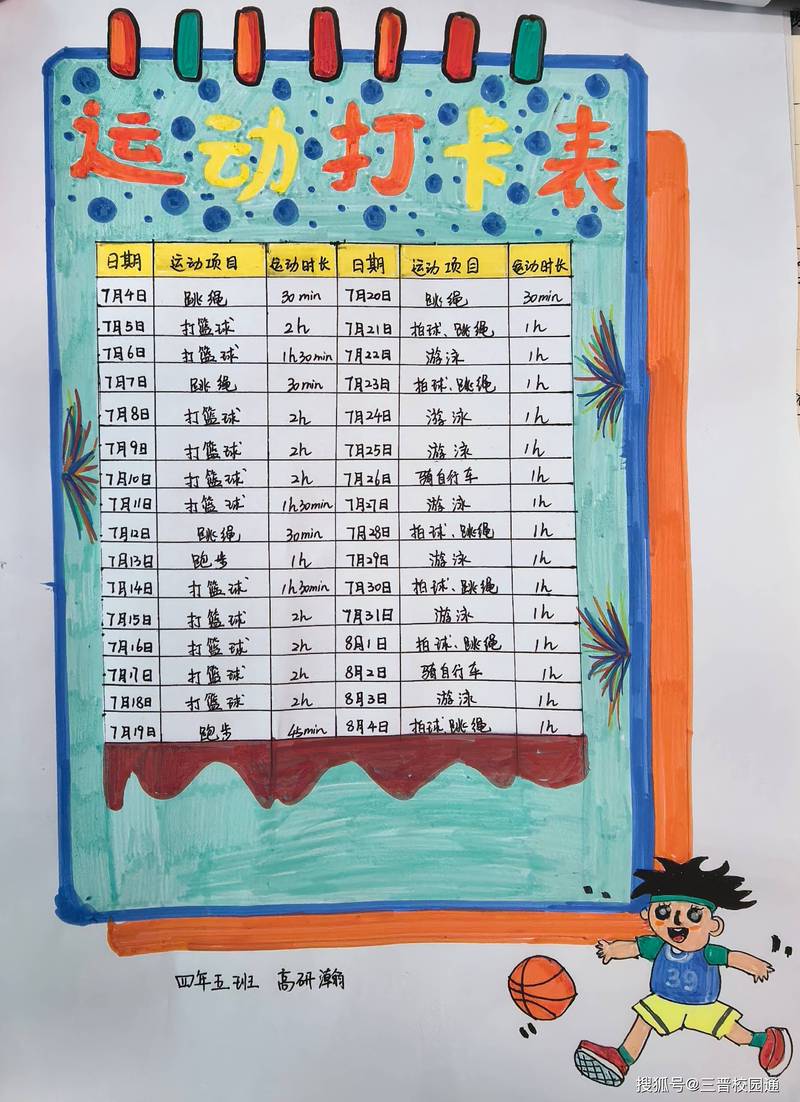 运动打卡表
日期 运动项目 运动时长 日期 运动项目 运动时长
7月4日 跳绳 30min 7月20日 跳绳 30min
7月5日 打篮球 2h 7月21日 拍球、跳绳 1h
7月6日 打篮球 1h30min 7月22日 游泳 1h
7月7日 跳绳 30min 7月23日 拍球、跳绳 1h
7月8日 打篮球 2h 7月24日 游泳 1h
7月9日 打篮球 2h 7月25日 游泳 1h
7月10日 打篮球 2h 7月26日 骑自行车 1h
7月11日 打篮球 1h30min 7月27日 游泳 1h
7月12日 跳绳 30min 7月28日 拍球、跳绳 1h
7月13日 跑步 1h 7月29日 游泳 1h
7月14日 打篮球 1h30min 7月30日 拍球、跳绳 1h
7月15日 打篮球 2h 7月31日 游泳 1h
7月16日 打篮球 2h 8月1日 拍球、跳绳 1h
7月17日 打篮球 2h 8月2日 骑自行车 1h
7月18日 打篮球 2h 8月3日 游泳 1h
7月19日 跑步 45min 8月4日 拍球、跳绳 1h
39
四年五班 高研瀚
搜狐号@三晋校园通